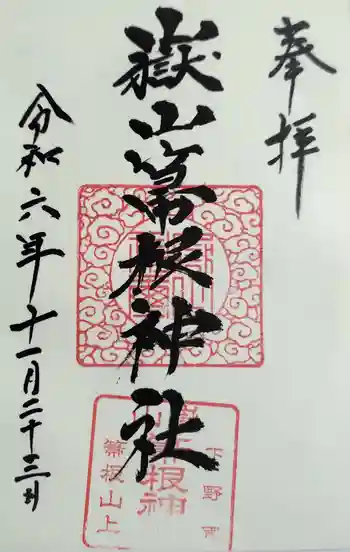 奉拝
嶽山箒根神社
令和六年十一月二十三日
下野
箒根神
箒根山上